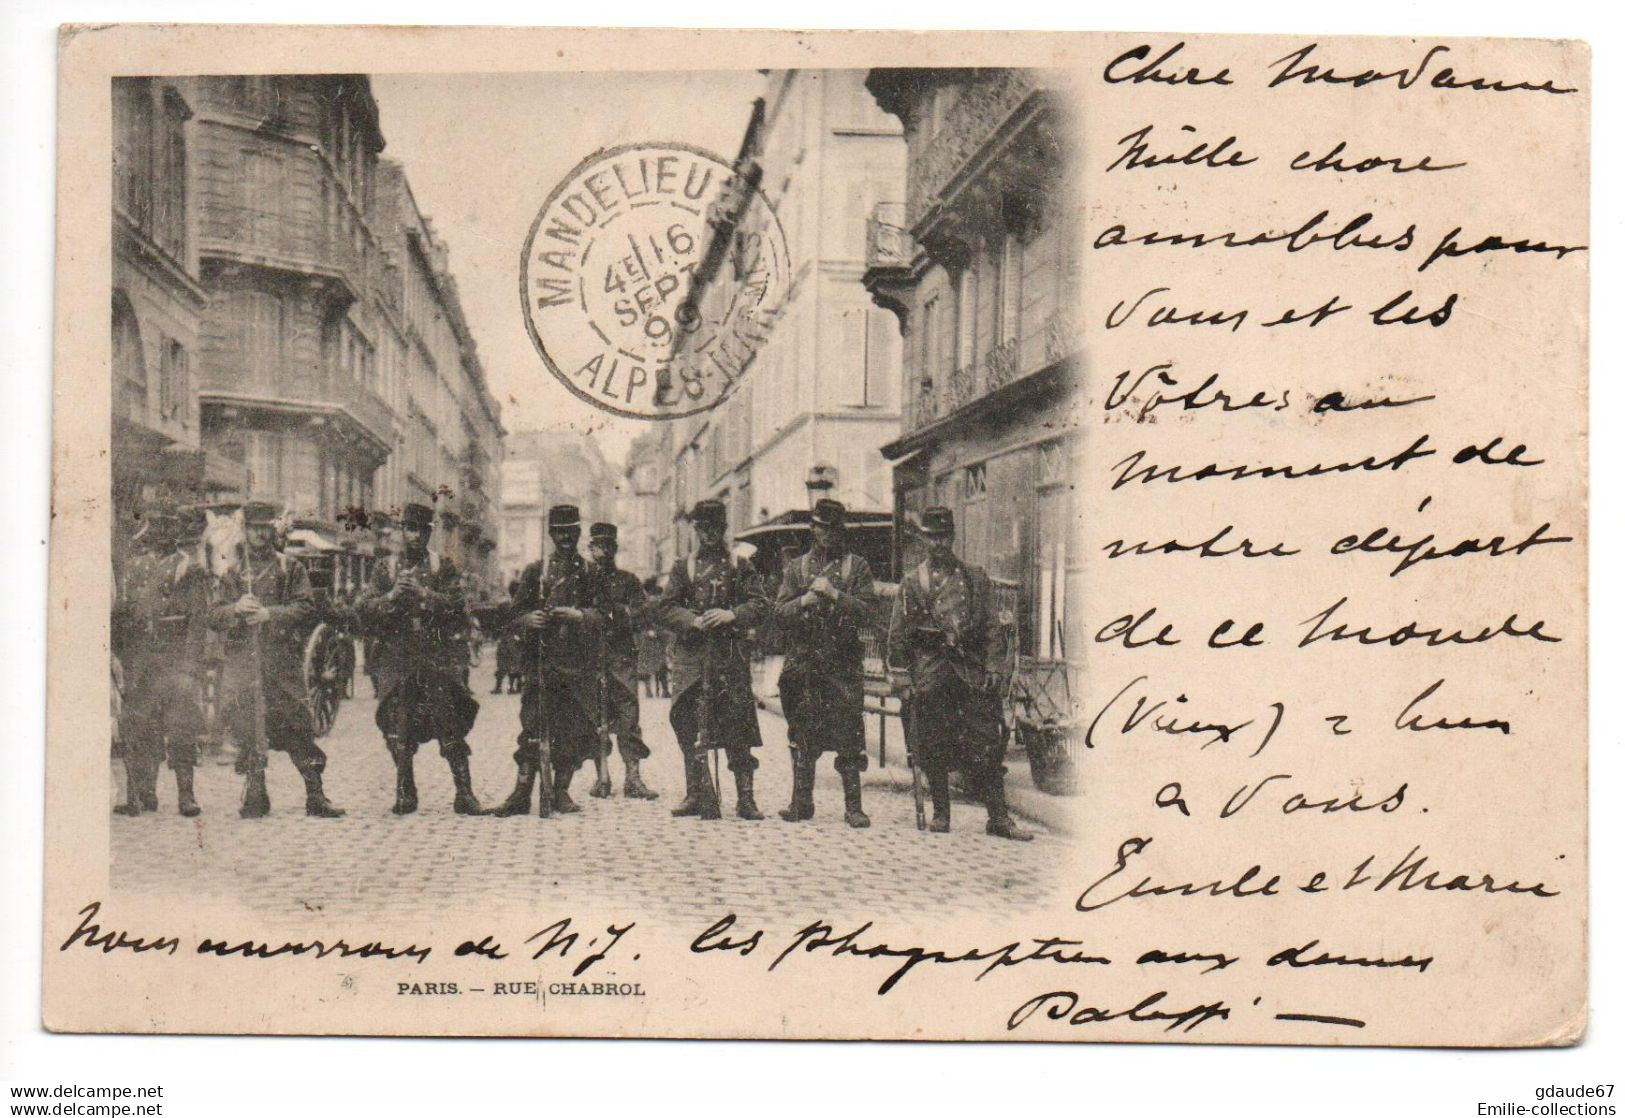 Chere Madame
Mille chose
aimables pour
vous et les
Vôtres au
moment de
notre départ
de ce monde
(Vieux) 
a vous.
Emile et Marie
Nous enverrons de N.J. les phographies aux dames
MANDELIEU
4E 16
SEPT
99
ALPES-MARMES
PARIS. — RUE CHABROL
delcampe.net
delcampe.net
gdaude67
Emilie-collections